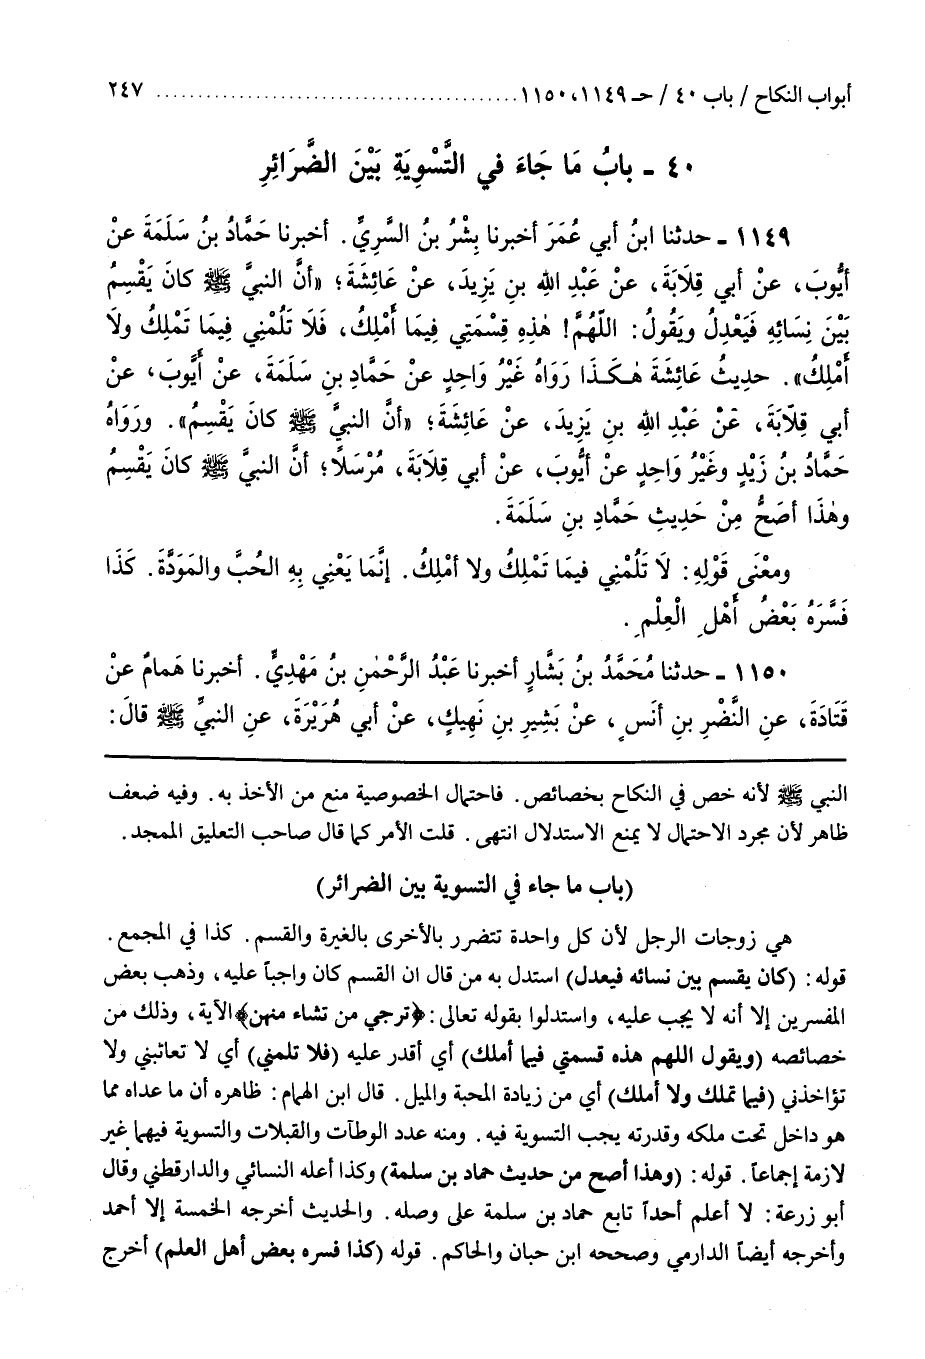 أبواب النكاح / باب ٤٠ / حـ ١١٤٩، ١١٥٠ ........................................ ٢٤٧
٤٠ ـ بابُ مَا جَاءَ في التَّسْوِيَةِ بَيْنَ الضَّرَائِرِ
١١٤٩ ـ حدثنا ابنُ أبي عُمَرَ أخبرنا بِشْرُ بنُ السَّرِيِّ. أخبرنا حَمَّادُ بنُ سَلَمَةَ عنْ
أيُّوبَ، عنْ أبي قِلَابَةَ، عنْ عَبْدِ اللهِ بنِ يَزِيدَ، عنْ عَائِشَةَ؛ «أنَّ النبيَّ ﷺ كانَ يَقْسِمُ
بَيْنَ نِسَائِهِ فَيَعْدِلُ ويَقُولُ: اللّهُمَّ! هٰذِهِ قِسْمَتِي فِيمَا أَمْلِكُ، فَلَا تَلُمْنِي فِيمَا تَمْلِكُ ولَا
أَمْلِكُ». حديثُ عَائِشَةَ هٰكَذَا رَوَاهُ غَيْرُ وَاحِدٍ عنْ حَمَّادِ بنِ سَلَمَةَ، عنْ أَيُّوبَ، عنْ
أبي قِلَابَةَ، عَنْ عَبْدِ اللهِ بنِ يَزِيدَ، عنْ عَائِشَةَ؛ «أنَّ النبيَّ ﷺ كانَ يَقْسِمُ». ورَوَاهُ
حَمَّادُ بنُ زَيْدٍ وغَيْرُ وَاحِدٍ عنْ أيُّوبَ، عنْ أبي قِلَابَةَ، مُرْسَلًا؛ أنَّ النبيَّ ﷺ كانَ يَقْسِمُ
وهٰذَا أصَحُّ مِنْ حَدِيثِ حَمَّادِ بنِ سَلَمَةَ.
ومعْنَى قَوْلِهِ: لَا تَلُمْنِي فيمَا تَمْلِكُ ولا أمْلِكُ. إنَّمَا يَعْنِي بِهِ الحُبَّ والمَوَدَّةَ. كَذَا
فَسَّرَهُ بَعْضُ أَهْلِ الْعِلْمِ.
١١٥٠ ـ حدثنا مُحَمَّدُ بنُ بَشَّارٍ أخبرنا عَبْدُ الرَّحْمٰنِ بنُ مَهْدِيٍّ. أخبرنا هَمامٌ عنْ
قَتَادَةَ، عنِ النَّضْرِ بنِ أنَسٍ، عنْ بَشِيرِ بنِ نَهِيكٍ، عنْ أبي هُرَيْرَةَ، عنِ النبيِّ ﷺ قالَ:
النبي ﷺ لأنه خص في النكاح بخصائص. فاحتمال الخصوصية منع من الأخذ به. وفيه ضعف
ظاهر لأن مجرد الاحتمال لا يمنع الاستدلال انتهى. قلت الأمر كما قال صاحب التعليق الممجد.
(باب ما جاء في التسوية بين الضرائر)
هي زوجات الرجل لأن كل واحدة تتضرر بالأخرى بالغيرة والقسم. كذا في المجمع.
قوله: (كان يقسم بين نسائه فيعدل) استدل به من قال ان القسم كان واجباً عليه، وذهب بعض
المفسرين إلا أنه لا يجب عليه، واستدلوا بقوله تعالى: ﴿ترجي من تشاء منهن﴾الآية، وذلك من
خصائصه (ويقول اللهم هذه قسمتي فيما أملك) أي أقدر عليه (فلا تلمني) أي لا تعاتبني ولا
تؤاخذني (فيما تملك ولا أملك) أي من زيادة المحبة والميل. قال ابن الهمام: ظاهره أن ما عداه مما
هو داخل تحت ملكه وقدرته يجب التسوية فيه. ومنه عدد الوطآت والقبلات والتسوية فيهما غير
لازمة إجماعاً. قوله: (وهذا أصح من حديث حماد بن سلمة) وكذا أعله النسائي والدارقطني وقال
أبو زرعة: لا أعلم أحداً تابع حماد بن سلمة على وصله. والحديث أخرجه الخمسة إلا أحمد
وأخرجه أيضاً الدارمي وصححه ابن حبان والحاكم. قوله (كذا فسره بعض أهل العلم) أخرج